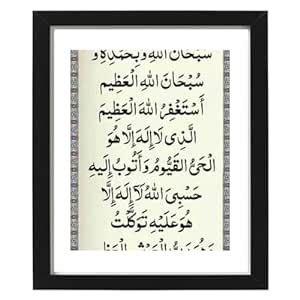 سُبْحَانَ اللهِ وَبِحَمْدِهِ وَ
سُبْحَانَ اللهِ الْعَظِيمِ
أَسْتَغْفِرُ اللهَ الْعَظِيمَ
الَّذِي لَا إِلَهَ إِلَّا هُوَ
الْحَيُّ الْقَيُّومُ وَأَتُوبُ إِلَيْهِ
حَسْبِيَ اللهُ لَا إِلَهَ إِلَّا
هُوَ عَلَيْهِ تَوَكَّلْتُ